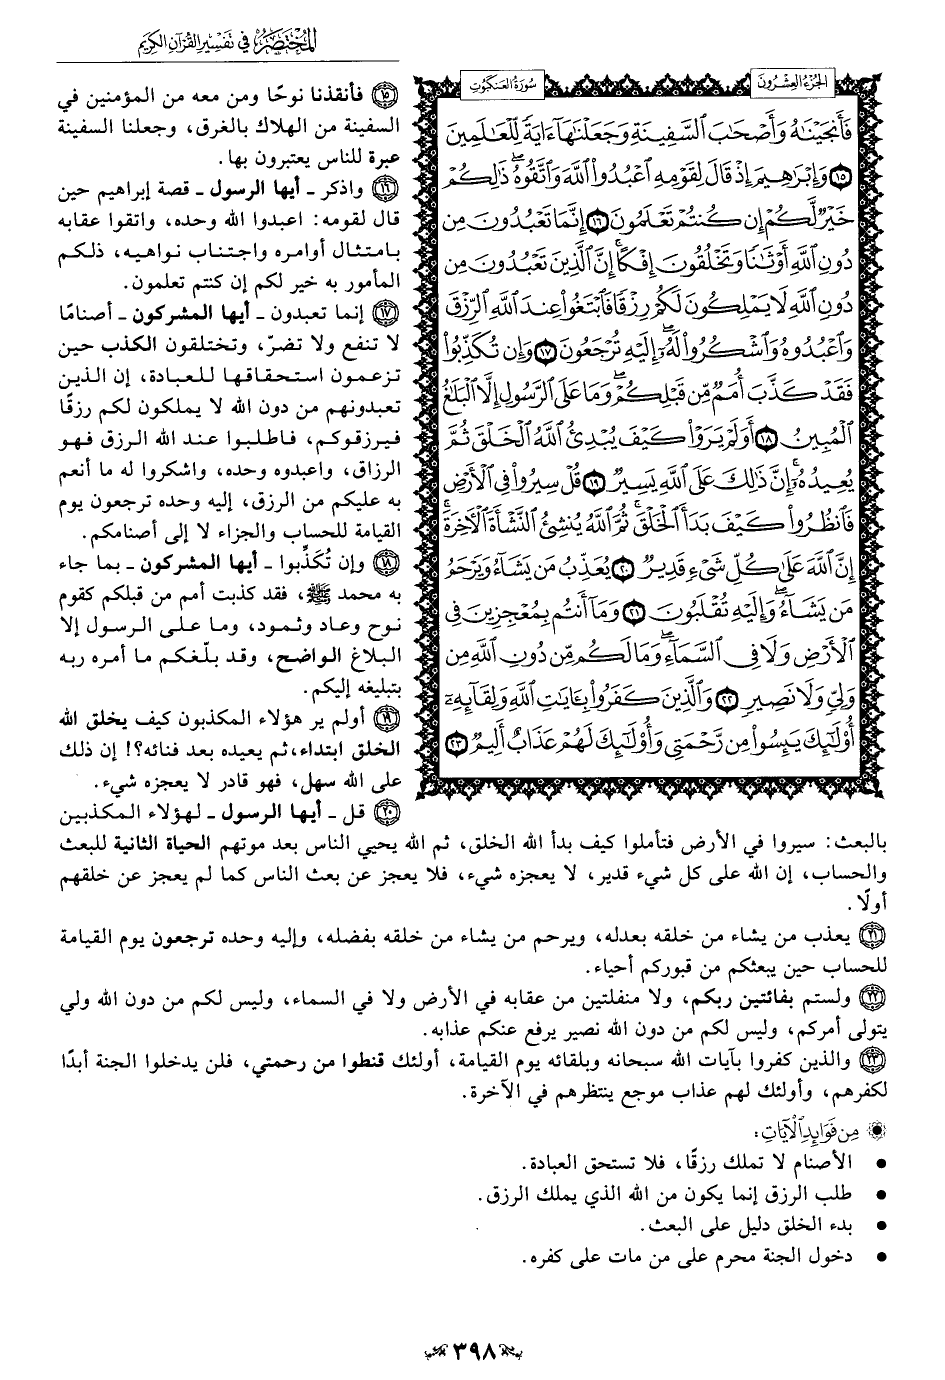 المختصر في تفسير القرآن الكريم
الجزء العشرون
سورة العنكبوت
فَأَنجَيْنَٰهُ وَأَصْحَٰبَ ٱلسَّفِينَةِ وَجَعَلْنَٰهَآ ءَايَةً لِّلْعَٰلَمِينَ
١٥ وَإِبْرَٰهِيمَ إِذْ قَالَ لِقَوْمِهِ ٱعْبُدُوا۟ ٱللَّهَ وَٱتَّقُوهُ ۖ ذَٰلِكُمْ
خَيْرٌ لَّكُمْ إِن كُنتُمْ تَعْلَمُونَ ١٦ إِنَّمَا تَعْبُدُونَ مِن
دُونِ ٱللَّهِ أَوْثَٰنًا وَتَخْلُقُونَ إِفْكًا ۚ إِنَّ ٱلَّذِينَ تَعْبُدُونَ مِن
دُونِ ٱللَّهِ لَا يَمْلِكُونَ لَكُمْ رِزْقًا فَٱبْتَغُوا۟ عِندَ ٱللَّهِ ٱلرِّزْقَ
وَٱعْبُدُوهُ وَٱشْكُرُوا۟ لَهُۥٓ ۖ إِلَيْهِ تُرْجَعُونَ ١٧ وَإِن تُكَذِّبُوا۟
فَقَدْ كَذَّبَ أُمَمٌ مِّن قَبْلِكُمْ ۖ وَمَا عَلَى ٱلرَّسُولِ إِلَّا ٱلْبَلَٰغُ
ٱلْمُبِينُ ١٨ أَوَلَمْ يَرَوْا۟ كَيْفَ يُبْدِئُ ٱللَّهُ ٱلْخَلْقَ ثُمَّ
يُعِيدُهُۥٓ ۚ إِنَّ ذَٰلِكَ عَلَى ٱللَّهِ يَسِيرٌ ١٩ قُلْ سِيرُوا۟ فِى ٱلْأَرْضِ
فَٱنظُرُوا۟ كَيْفَ بَدَأَ ٱلْخَلْقَ ۚ ثُمَّ ٱللَّهُ يُنشِئُ ٱلنَّشْأَةَ ٱلْءَاخِرَةَ ۚ
إِنَّ ٱللَّهَ عَلَىٰ كُلِّ شَىْءٍ قَدِيرٌ ٢٠ يُعَذِّبُ مَن يَشَآءُ وَيَرْحَمُ
مَن يَشَآءُ ۖ وَإِلَيْهِ تُقْلَبُونَ ٢١ وَمَآ أَنتُم بِمُعْجِزِينَ فِى
ٱلْأَرْضِ وَلَا فِى ٱلسَّمَآءِ ۖ وَمَا لَكُم مِّن دُونِ ٱللَّهِ مِن
وَلِىٍّ وَلَا نَصِيرٍ ٢٢ وَٱلَّذِينَ كَفَرُوا۟ بِـَٔايَٰتِ ٱللَّهِ وَلِقَآئِهِۦٓ
أُو۟لَٰٓئِكَ يَئِسُوا۟ مِن رَّحْمَتِى وَأُو۟لَٰٓئِكَ لَهُمْ عَذَابٌ أَلِيمٌ ٢٣
١٥ فأنقذنا نوحًا ومن معه من المؤمنين في
السفينة من الهلاك بالغرق، وجعلنا السفينة
عبرة للناس يعتبرون بها.
١٦ واذكر - أيها الرسول - قصة إبراهيم حين
قال لقومه: اعبدوا الله وحده، واتقوا عقابه
بامتثال أوامره واجتناب نواهيه، ذلكم
المأمور به خير لكم إن كنتم تعلمون.
١٧ إنما تعبدون - أيها المشركون - أصنامًا
لا تنفع ولا تضرّ، وتختلقون الكذب حين
تزعمون استحقاقها للعبادة، إن الذين
تعبدونهم من دون الله لا يملكون لكم رزقًا
فيرزقوكم، فاطلبوا عند الله الرزق فهو
الرزاق، واعبدوه وحده، واشكروا له ما أنعم
به عليكم من الرزق، إليه وحده ترجعون يوم
القيامة للحساب والجزاء لا إلى أصنامكم.
١٨ وإن تُكَذِّبوا - أيها المشركون - بما جاء
به محمد ﷺ، فقد كذبت أمم من قبلكم كقوم
نوح وعاد وثمود، وما على الرسول إلا
البلاغ الواضح، وقد بلّغكم ما أمره ربه
بتبليغه إليكم.
١٩ أولم ير هؤلاء المكذبون كيف يخلق الله
الخلق ابتداء، ثم يعيده بعد فنائه؟! إن ذلك
على الله سهل، فهو قادر لا يعجزه شيء.
٢٠ قل - أيها الرسول - لهؤلاء المكذبين
بالبعث: سيروا في الأرض فتأملوا كيف بدأ الله الخلق، ثم الله يحيي الناس بعد موتهم الحياة الثانية للبعث
والحساب، إن الله على كل شيء قدير، لا يعجزه شيء، فلا يعجز عن بعث الناس كما لم يعجز عن خلقهم
أولًا.
٢١ يعذب من يشاء من خلقه بعدله، ويرحم من يشاء من خلقه بفضله، وإليه وحده ترجعون يوم القيامة
للحساب حين يبعثكم من قبوركم أحياء.
٢٢ ولستم بفائتين ربكم، ولا منفلتين من عقابه في الأرض ولا في السماء، وليس لكم من دون الله ولي
يتولى أمركم، وليس لكم من دون الله نصير يرفع عنكم عذابه.
٢٣ والذين كفروا بآيات الله سبحانه وبلقائه يوم القيامة، أولئك قنطوا من رحمتي، فلن يدخلوا الجنة أبدًا
لكفرهم، وأولئك لهم عذاب موجع ينتظرهم في الآخرة.
من فوائد الآيات:
• الأصنام لا تملك رزقًا، فلا تستحق العبادة.
• طلب الرزق إنما يكون من الله الذي يملك الرزق.
• بدء الخلق دليل على البعث.
• دخول الجنة محرم على من مات على كفره.
٣٩٨